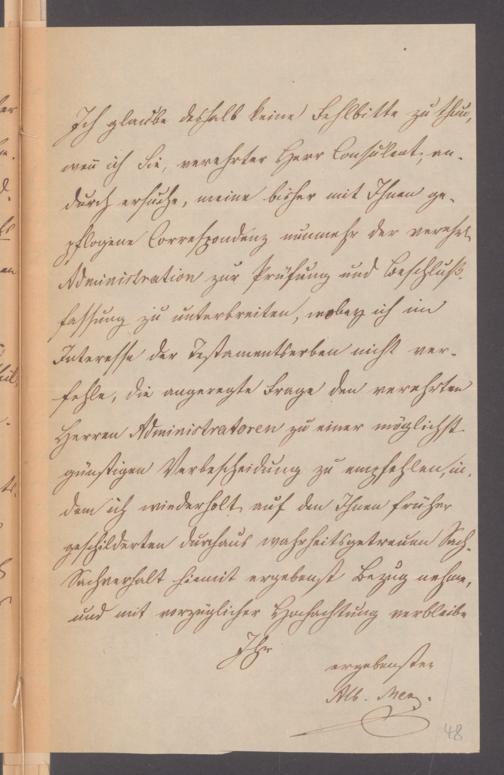 Ich glaube deshalb keine Fehlbitte zu thun,
wenn ich Sie, verehrter Herr Consulent, an-
durch ersuche, meine bisher mit Ihnen ge-
pflogene Correspondenz nunmehr der verehrl.
Administration zur Prüfung und Beschluß-
fassung zu unterbreiten, wobey ich im
Interesse der Testamentserben nicht ver-
fehle, die angeregte Frage den verehrten
Herren Administratoren zu einer möglichst
günstigen Verbescheidung zu empfehlen, in-
dem ich wiederholt auf den Ihnen früher
geschilderten durchaus wahrheitsgetreuen Sach-
Sachverhalt hiemit ergebenst Bezug nehme,
und mit vorzüglicher Hochachtung verbleibe
Ihr
ergebenster
Alb.
48